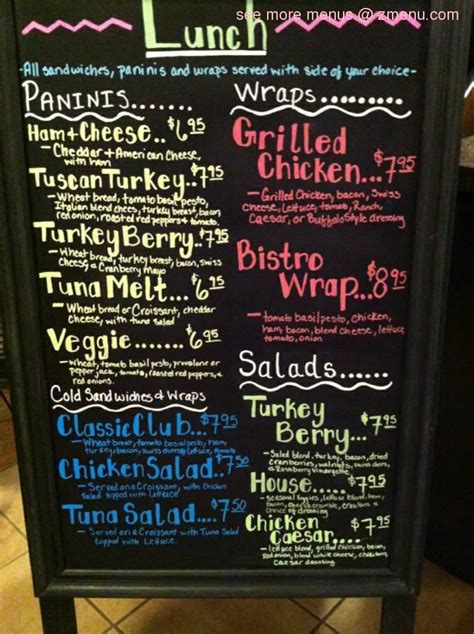 see more menus @ zmenu.com
Lunch
-All sandwiches, paninis and wraps served with side of your choice-
PANINIS.......
Ham+Cheese.. $6.95
- Cheddar + American Cheese,
with ham
Tuscan Turkey.. $7.95
- Wheat bread, tomato basil pesto,
Italian blend chees, turkey breast, bacon
red onion, roasted red peppers & tomato.
Turkey Berry.. $7.95
- Wheat bread, turkey breast, bacon, swiss
cheese, a Cranberry Mayo
Tuna Melt... $6.95
- Wheat bread or Croissant, cheddar
cheese, with tuna salad
Veggie...... $6.95
- Wheat, tomato basil pesto, provolone or
pepper jack, tomato, roasted red peppers, &
red onions.
Cold Sandwiches & Wraps
Classic Club.. $7.95
- Wheat breast, tomato basil pesto, ham,
turkey, bacon, swiss, lettuce, tomato
Chicken Salad.. $7.50
- Served on a Croissant, with Chicken
Salad topped with Lettuce
Tuna Salad.... $7.50
- Served on a Croissant with Tuna Salad
topped with Lettuce.
Wraps.....
Grilled
Chicken... $7.95
- Grilled Chicken, bacon, Swiss
cheese, lettuce, tomato, Ranch,
Caesar, or Buffalo Style dressing
Bistro
Wrap... $8.95
- tomato basil pesto, chicken,
ham, bacon, blend cheese, lettuce
tomato, onion
Salads.....
Turkey
Berry.... $7.95
- Salad blend, turkey, bacon, dried
cranberries, walnuts, swiss
a Raspberry Vinaigrette
House.... $7.95
- seasonal veggies, lettuce blend, ham,
bacon, croutons &
Choice of dressing
Chicken
Caesar.... $7.95
- lettuce blend, grilled chicken, bacon,
Red onion, cheese, croutons
Caesar dressing